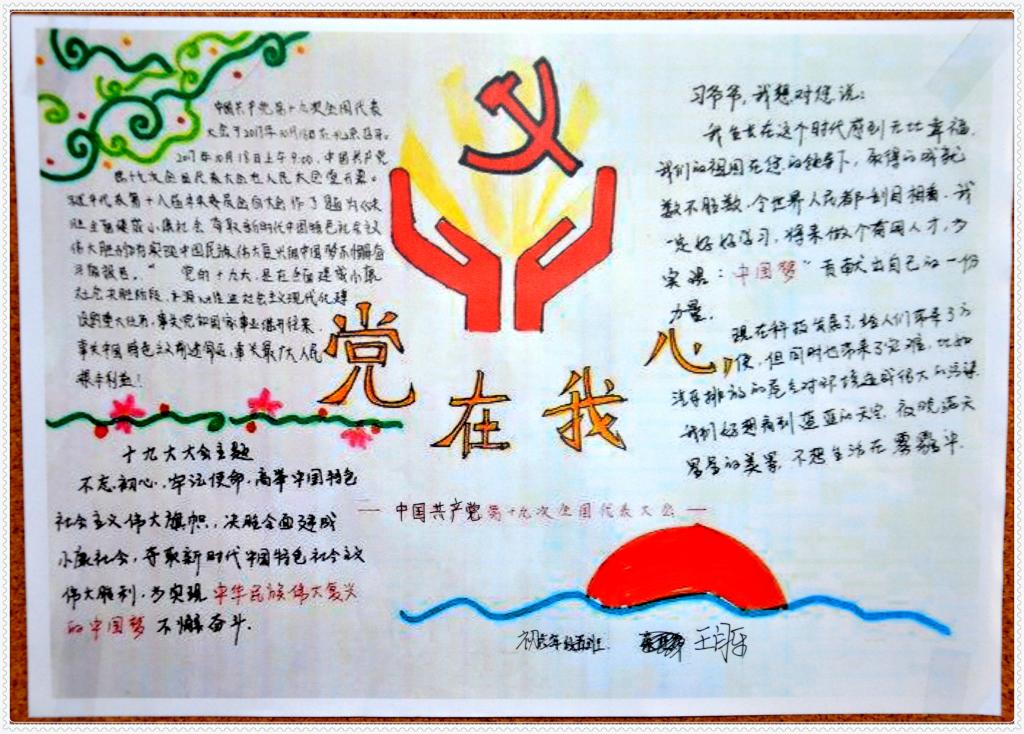 中国共产党第十九次全国代表
大会于2017年10月18日在北京召开。
2017年10月18日上午9:00，中国共产党
第十九次全国代表大会在人民大会堂开幕。
习近平代表第十八届中央委员会向大会作了题为《决
胜全面建成小康社会 夺取新时代中国特色社会主义
伟大胜利
党的十九大，是在全面建成小康
社会决胜阶段
设的重大任务，事关党和国家事业继往开来，
事关中国特色社会主义前途命运，事关最广大人民
根本利益！
党在我心
十九大大会主题
不忘初心，牢记使命，高举中国特色
社会主义伟大旗帜，决胜全面建成
小康社会，夺取新时代中国特色社会主义
伟大胜利，为实现中华民族伟大复兴
的中国梦不懈奋斗．
一 中国共产党第十九次全国代表大会 一
习爷爷，我想对您说：
我生长在这个时代感到无比幸福．
我们的祖国在您的领导下，取得的成就
数不胜数，令世界人民都刮目相看．我
一定好好学习，将来做个有用人才，为
实现：中国梦”贡献出自己的一份
力量．
现在科技发展了，给人们带来了方
便，但同时也带来了灾难，比如
汽车排放的尾气对环境造成伟大的污染
我们好想看到蓝蓝的天空，夜晚满天
星星的美景，不想生活在雾霾中．